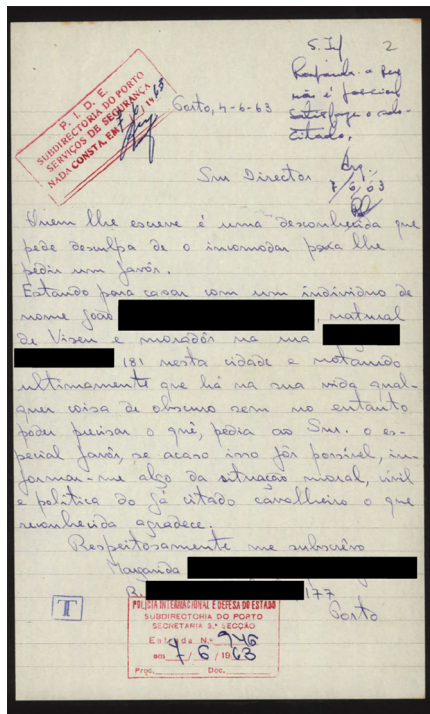 P. I. D. E.
SUBDIRECTORIA DO PORTO
SERVIÇOS DE SEGURANÇA
NADA CONSTA, EM 7/6/1965
S. If
2
Responda-se que
não é possível
satisfazer o solicitado.
7/6/63
Porto, 4-6-63
Snr Director
Quem lhe escreve é uma desconhecida que
pede desculpa de o incomodar para lhe
pedir um favôr.
Estando para casar com um indivíduo de
nome João , natural
de Viseu e moradôr na rua
181 nesta cidade e notando
ultimamente que há na sua vida qual-
quer coisa de obscuro sem no entanto
poder precisar o quê, pedia ao Snr. o es-
pecial favôr, se acaso isso fôr possível, in-
formar-me algo da situação moral, civil
e política do já citado cavalheiro o que
reconhecida agradece.
Respeitosamente me subscrêvo
Margarida
177
Porto
T
POLÍCIA INTERNACIONAL E DEFESA DO ESTADO
SUBDIRECTORIA DO PORTO
SECRETARIA 3.ª SECÇÃO
Entrada N.º 946
em 7/6/1963
Proc. Doc.